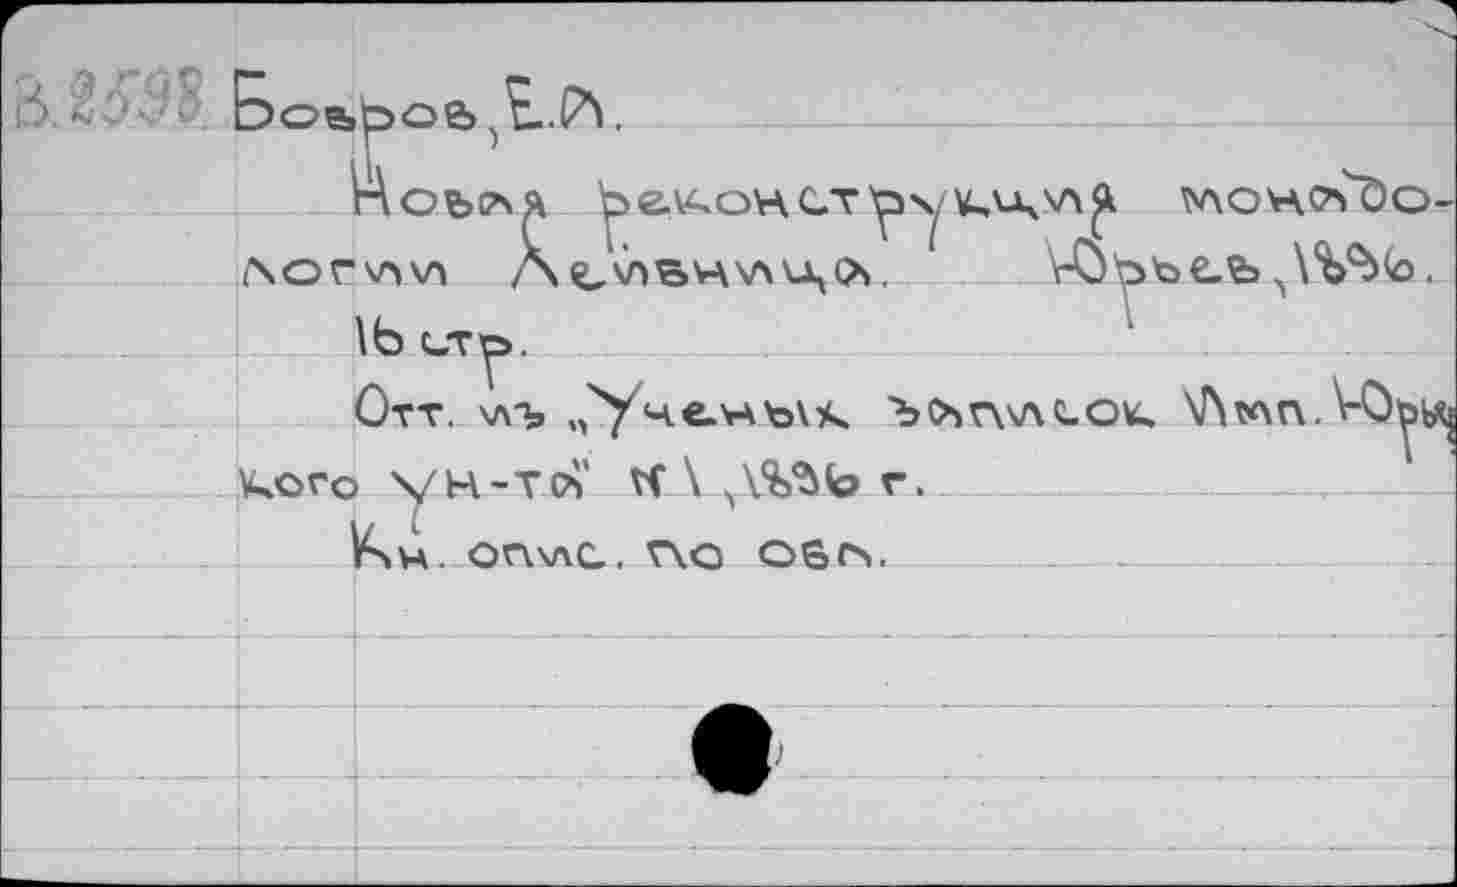 В.2598 Бобров, Е.А.
Новая реконструкция монадо-
логии Лейбница. Юрьев, 1896.
16 стр.
Отт. изъ „Ученыхъ Записок Имп. Юрьев
кого Ун-та" №1, 1896 г.
Кн. опис. по обл.